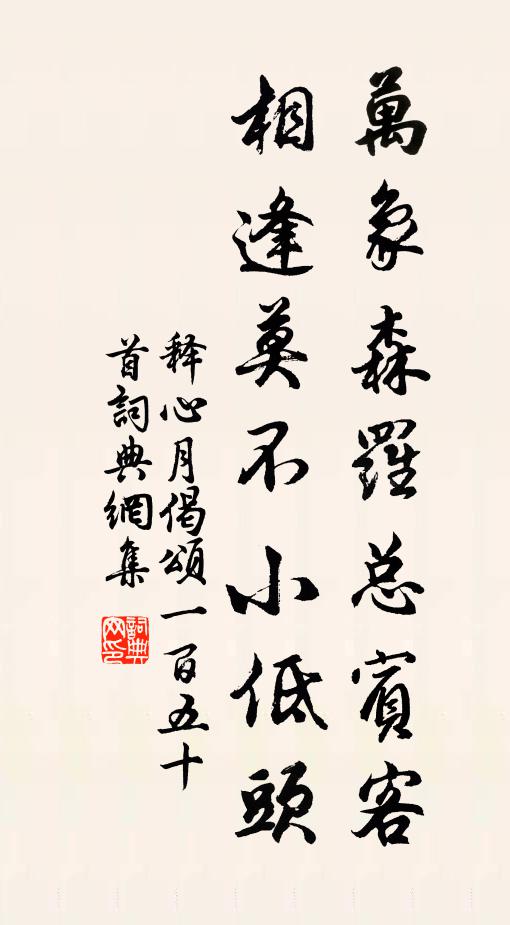 萬象森羅总賓客
相逢莫不小低頭
释心月偈頌一百五十
首詞典網集
詞典
网印